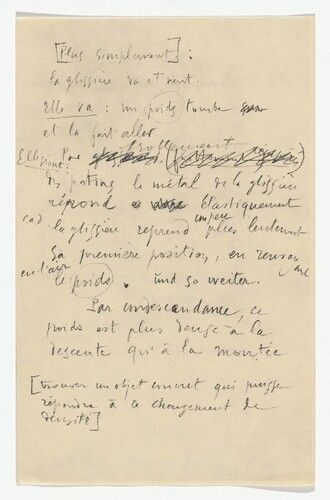 [Plus simplement] :
la glissière va et vient.
Elle va : un poids tombe
et la fait aller
Elle vient : Par frottement
des patins le métal de la glissière
répond élastiquement
càd la glissière reprend un peu plus lentement
sa première position, en renvoyant
en l'air le poids. und so weiter.
Par condescendance, ce
poids est plus dense à la
descente qu'à la montée
[trouver un objet concret qui puisse
répondre à ce changement de
densité]